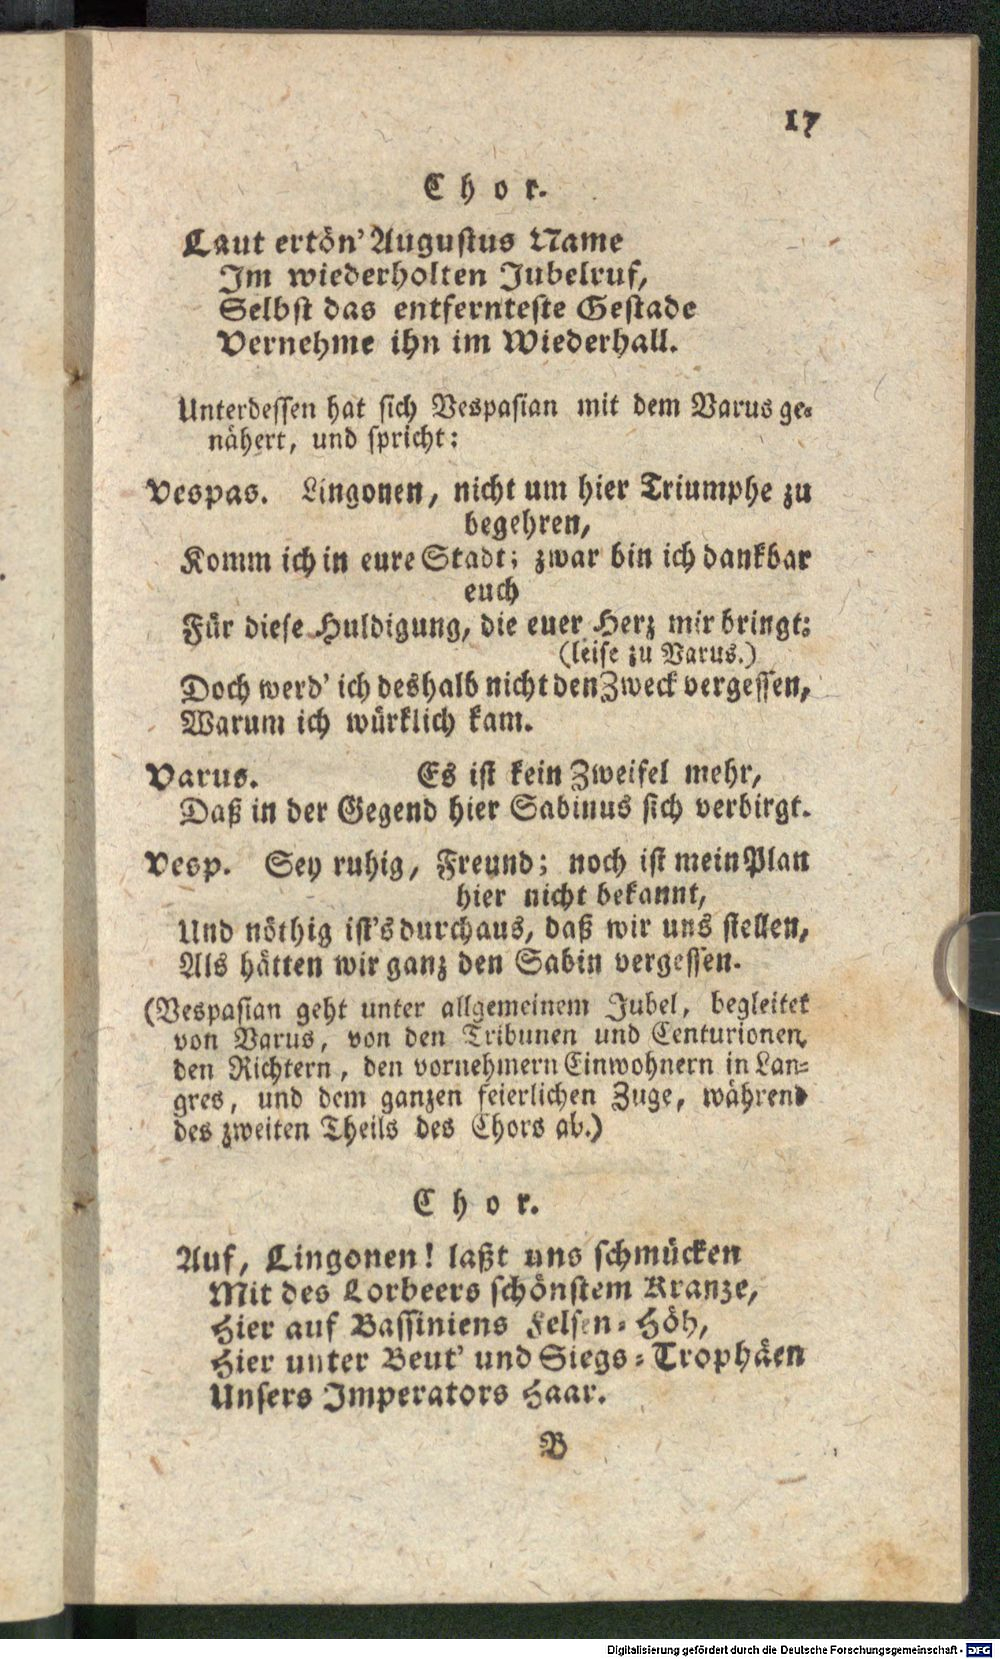 17
Chor.
Laut ertön' Augustus Name
Im wiederholten Jubelruf,
Selbst das entfernteste Gestade
Vernehme ihn im Wiederhall.
Unterdessen hat sich Vespasian mit dem Varus ge-
nähert, und spricht:
Vespas. Lingonen, nicht um hier Triumphe zu
begehren,
Komm ich in eure Stadt; zwar bin ich dankbar
euch
Für diese Huldigung, die euer Herz mir bringt:
(leise zu Varus.)
Doch werd' ich deshalb nicht den Zweck vergessen,
Warum ich würklich kam.
Varus. Es ist kein Zweifel mehr,
Daß in der Gegend hier Sabinus sich verbirgt.
Vesp. Sey ruhig, Freund; noch ist mein Plan
hier nicht bekannt,
Und nöthig ist's durchaus, daß wir uns stellen,
Als hätten wir ganz den Sabin vergessen.
(Vespasian geht unter allgemeinem Jubel, begleitet
von Varus, von den Tribunen und Centurionen,
den Richtern, den vornehmern Einwohnern in Lan-
gres, und dem ganzen feierlichen Zuge, während
des zweiten Theils des Chors ab.)
Chor.
Auf, Lingonen! laßt uns schmücken
Mit des Lorbeers schönstem Kranze,
Hier auf Bassiniens Felsen-Höh,
Hier unter Beut' und Siegs-Trophäen
Unsers Imperators Haar.
B
Digitalisierung gefördert durch die Deutsche Forschungsgemeinschaft - DFG